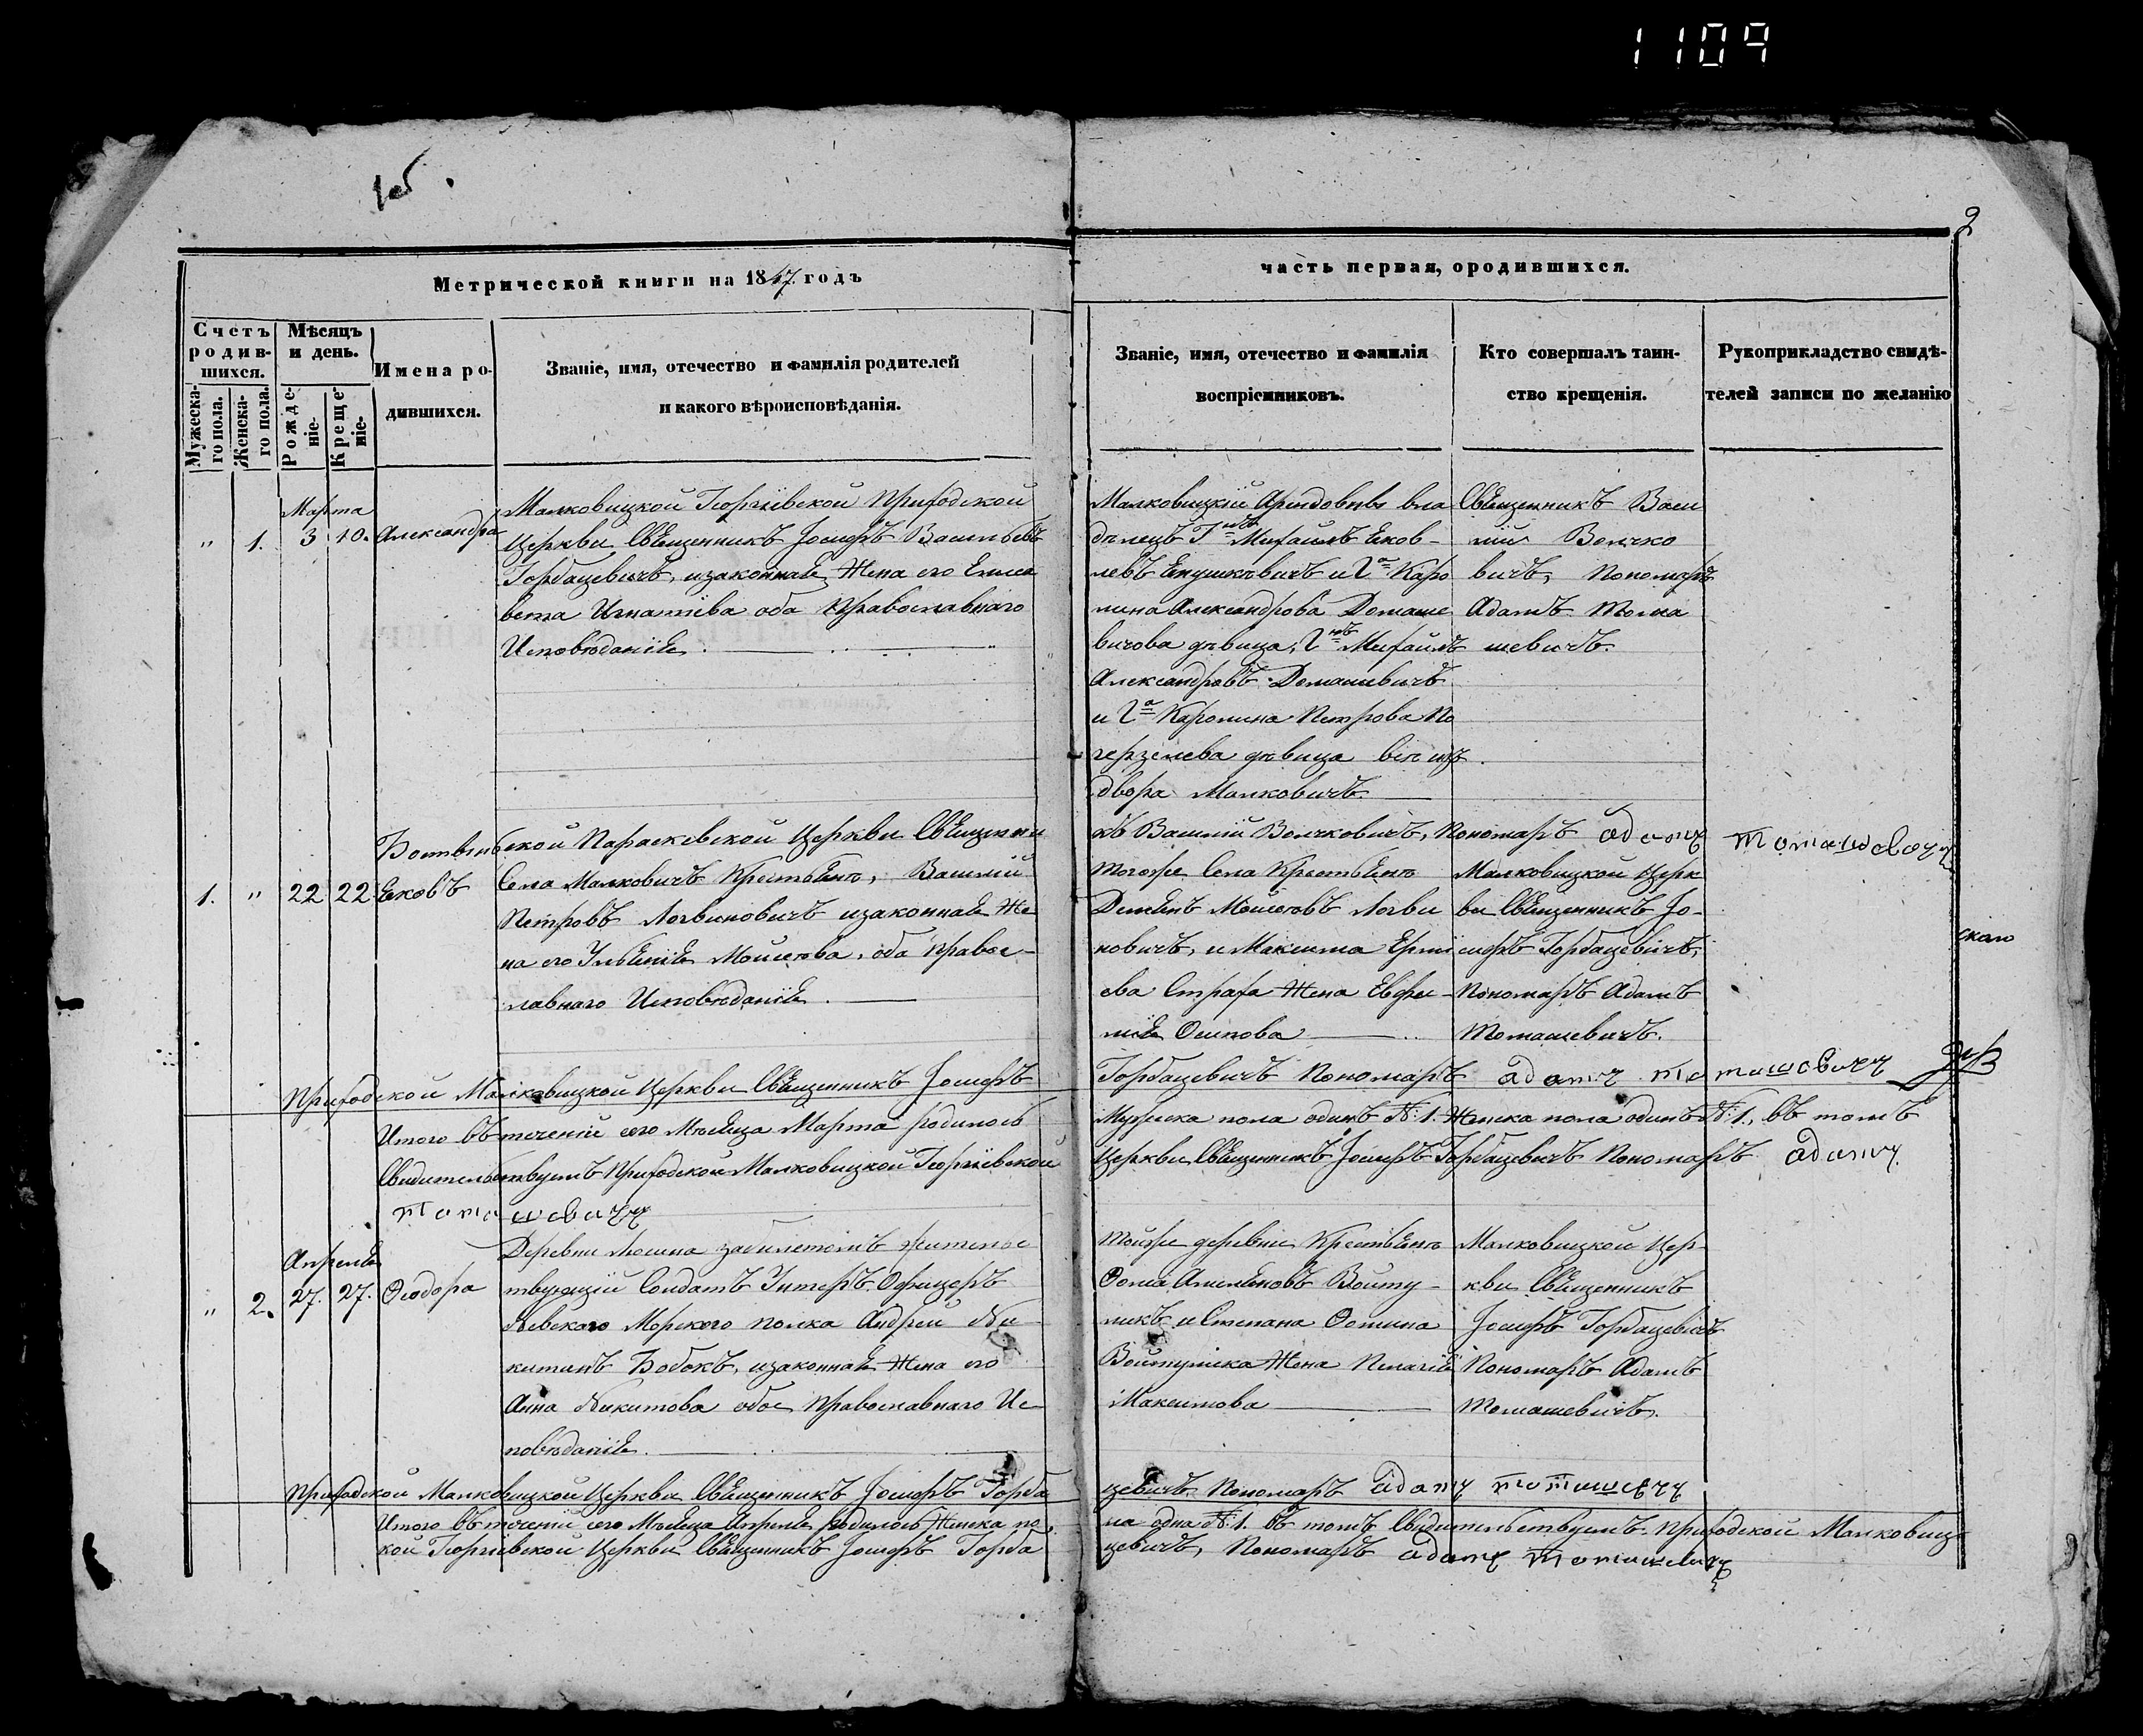 1109
165.
2
Метрической книги на 1847. годъ
часть первая, ородившихся.
Счетъ родив-шихся.
Мужеска-го пола.
Женска-го пола.
Мѣсяцъ и день.
Рожде-ніе-
Креще-ніе-
Имена ро-дившихся.
Званіе, имя, отечество и фамилія родителей
и какого вѣроисповѣданія.
Званіе, имя, отечество и фамилія
воспріемниковъ.
Кто совершалъ таин-
ство крещенія.
Рукоприкладство свидѣ-
телей записи по желанію
Марта
" 1. 3 10. Александра
Малковицкой Георгіевской Приходской
Церкви Священникъ Іосифъ Васильевъ
Горбацевичъ, изаконная Жена его Елиса
вета Игнатіева оба Православнаго
Исповѣданія.
Малковицкій Арендовный вла
дѣлецъ Г-нъ Михаилъ Яков-
левъ Янушкевичъ и Г-а Каро
лина Александрова Домаше
вичова дѣвица, Г-нъ Михаилъ
Александровъ Домашевичъ
и Г-а Каролина Петрова По
черзелева дѣвица всѣ изъ
двора Малковичъ.
Священникъ Васи
лій Волчко
вичъ, Пономаръ
Адамъ Тома
шевичъ.
Боствинской Параскевской Церкви Священни
къ Василій Волчковичъ, Пономаръ Адамъ Томашевичъ
1. " 22 22 Яковъ
Села Малковичъ Крестьянъ, Василій
Петровъ Логвиновичъ изаконная Же
на его Ульянія Мойсеова, оба Правос-
лавнаго Исповѣданія.
Тогоже Села Крестьянъ
Демянъ Мойсеовъ Логви
новичъ, и Максима Ерми
ева Страха Жена Евфи-
мія Осипова
Малковицкой Церк
ви Священникъ Іо-
сифъ Горбацевичъ,
Пономаръ Адамъ
Томашевичъ.
скаго
Приходской Малковицкой Церкви Священникъ Іосифъ
Горбацевичъ Пономаръ Адамъ Томашевичъ
Итого въ теченіи сего Мѣсяца Марта родилось
Мужеска пола одинъ №: 1. Женска пола одинъ №: 1., въ томъ
Свидительствуемъ Приходской Малковицкой Георгіевской
Церкви Священникъ Іосифъ Горбацевичъ Пономаръ Адамъ
Томашевичъ
Апреля
" 2. 27. 27. Феодора
Деревни Люсина забилетомъ жительс
твующій Солдатъ Унтеръ Офицеръ
Невскаго Морскаго полка Андрей Ни
китинъ Бобокъ, изаконная Жена его
Анна Никитова обое Православнаго Ис
повѣданія.
Тойже деревни Крестьянъ
Фома Амельяновъ Войту-
ликъ и Степана Фомина
Войтулика Жена Пелагія
Максимова
Малковицкой Цер
кви Священникъ
Іосифъ Горбацевичъ
Пономаръ Адамъ
Томашевичъ.
Приходской Малковицкой Церкви Священникъ Іосифъ Горба
цевичъ Пономаръ Адамъ Томашевичъ
Итого въ теченіи сего Мѣсяца Апреля родилось Женска по
ла одна №: 1. въ томъ Свидительствуемъ. Приходской Малковиц
кой Георгіевской Церкви Священникъ Іосифъ Горба
цевичъ, Пономаръ Адамъ Томашевичъ